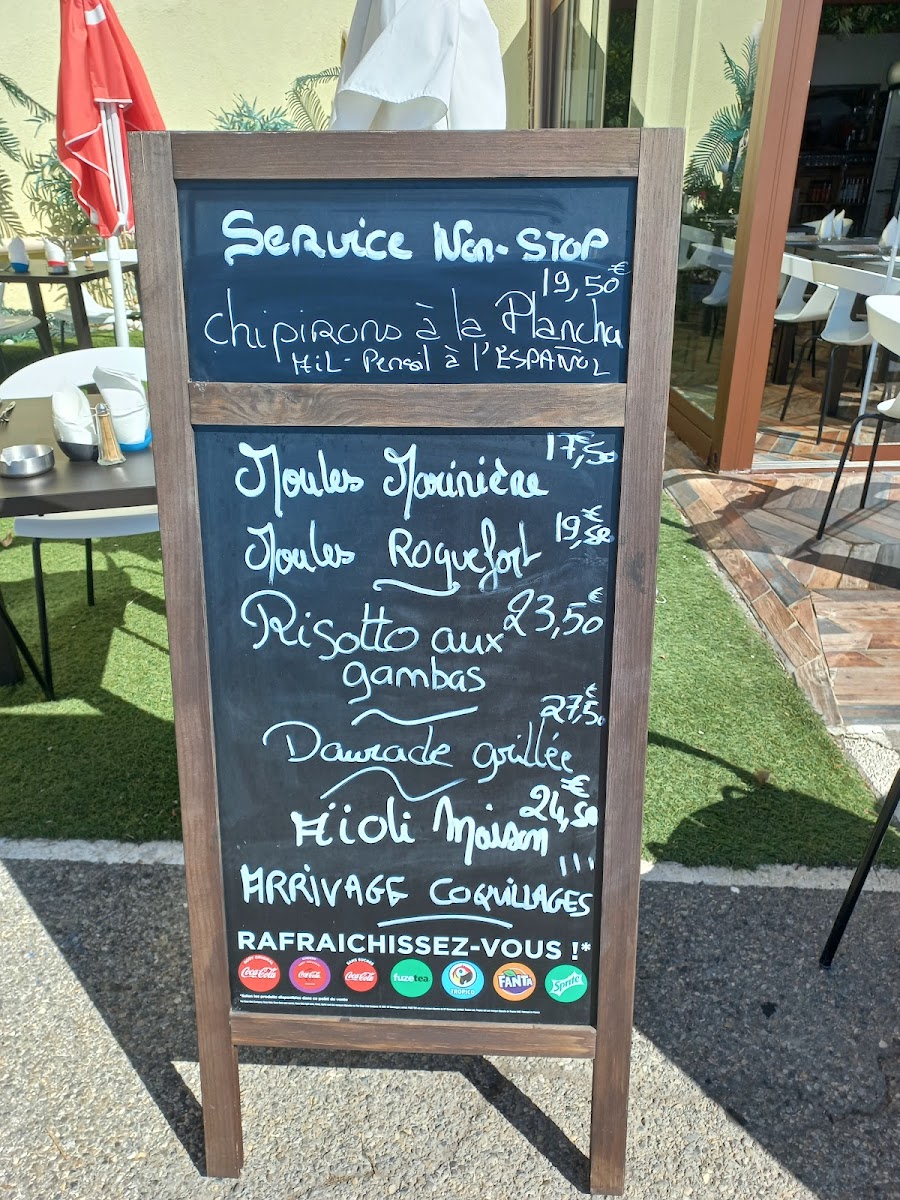 Service Non-STOP
19,50€
chipirons à la Plancha
AiL-Persol à l'ESPAÑOL
17€,50
Moules Marinière
19,€50
Moules Roquefort
23,50€
Risotto aux
gambas
27,€50
Daurade grillée
24,€50
Aïoli Maison
ARRIVAGE COQUILLAGES !!!
RAFRAICHISSEZ-VOUS !*
Coca-Cola Coca-Cola SANS SUCRES Coca-Cola fuzetea TROPICO FANTA Sprite
*Selon les produits disponibles dans ce point de vente